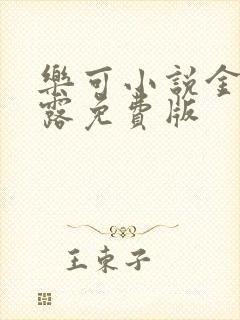 樂可小說金
露免費版
王東子